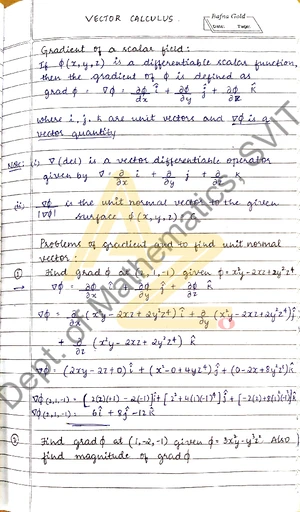 VECTOR CALCULUS.
Bafna Gold
Date: Page:
Gradient of a scalar field:
If φ(x,y,z) is a differentiable scalar function,
then the gradient of φ is defined as
grad φ = ∇φ = ∂φ/∂x î + ∂φ/∂y ĵ + ∂φ/∂z k̂
where i, j, k are unit vectors and ∇φ is a
vector quantity
Note: (i) ∇ (del) is a vector differentiable operator
given by ∇ = ∂/∂x i + ∂/∂y j + ∂/∂z k
ii) ∇φ/|∇φ| is the unit normal vector to the given
surface φ(x,y,z) = c
Problems of gradient and to find unit normal
vector :
① Find grad φ at (2,1,-1) given φ = x²y - 2xz + 2y²z⁴
→ ∇φ = ∂φ/∂x î + ∂φ/∂y ĵ + ∂φ/∂z k̂
∇φ = ∂/∂x (x²y - 2xz + 2y²z⁴) î + ∂/∂y (x²y - 2xz + 2y²z⁴) ĵ
+ ∂/∂z (x²y - 2xz + 2y²z⁴) k̂
∇φ = (2xy - 2z + 0) î + (x² - 0 + 4yz⁴) ĵ + (0 - 2x + 8y²z³) k̂
∇φ (2,1,-1) = [2(2)(1) - 2(-1)] î + [2² + 4(1)(-1)⁴] ĵ + [-2(2) + 8(1)(-1)³] k̂
∇φ (2,1,-1) = 6î + 8ĵ - 12k̂
② Find grad φ at (1,-2,-1) given φ = 3x²y - y³z². Also
find magnitude of grad φ
Dept. of Mathematics, SVIT